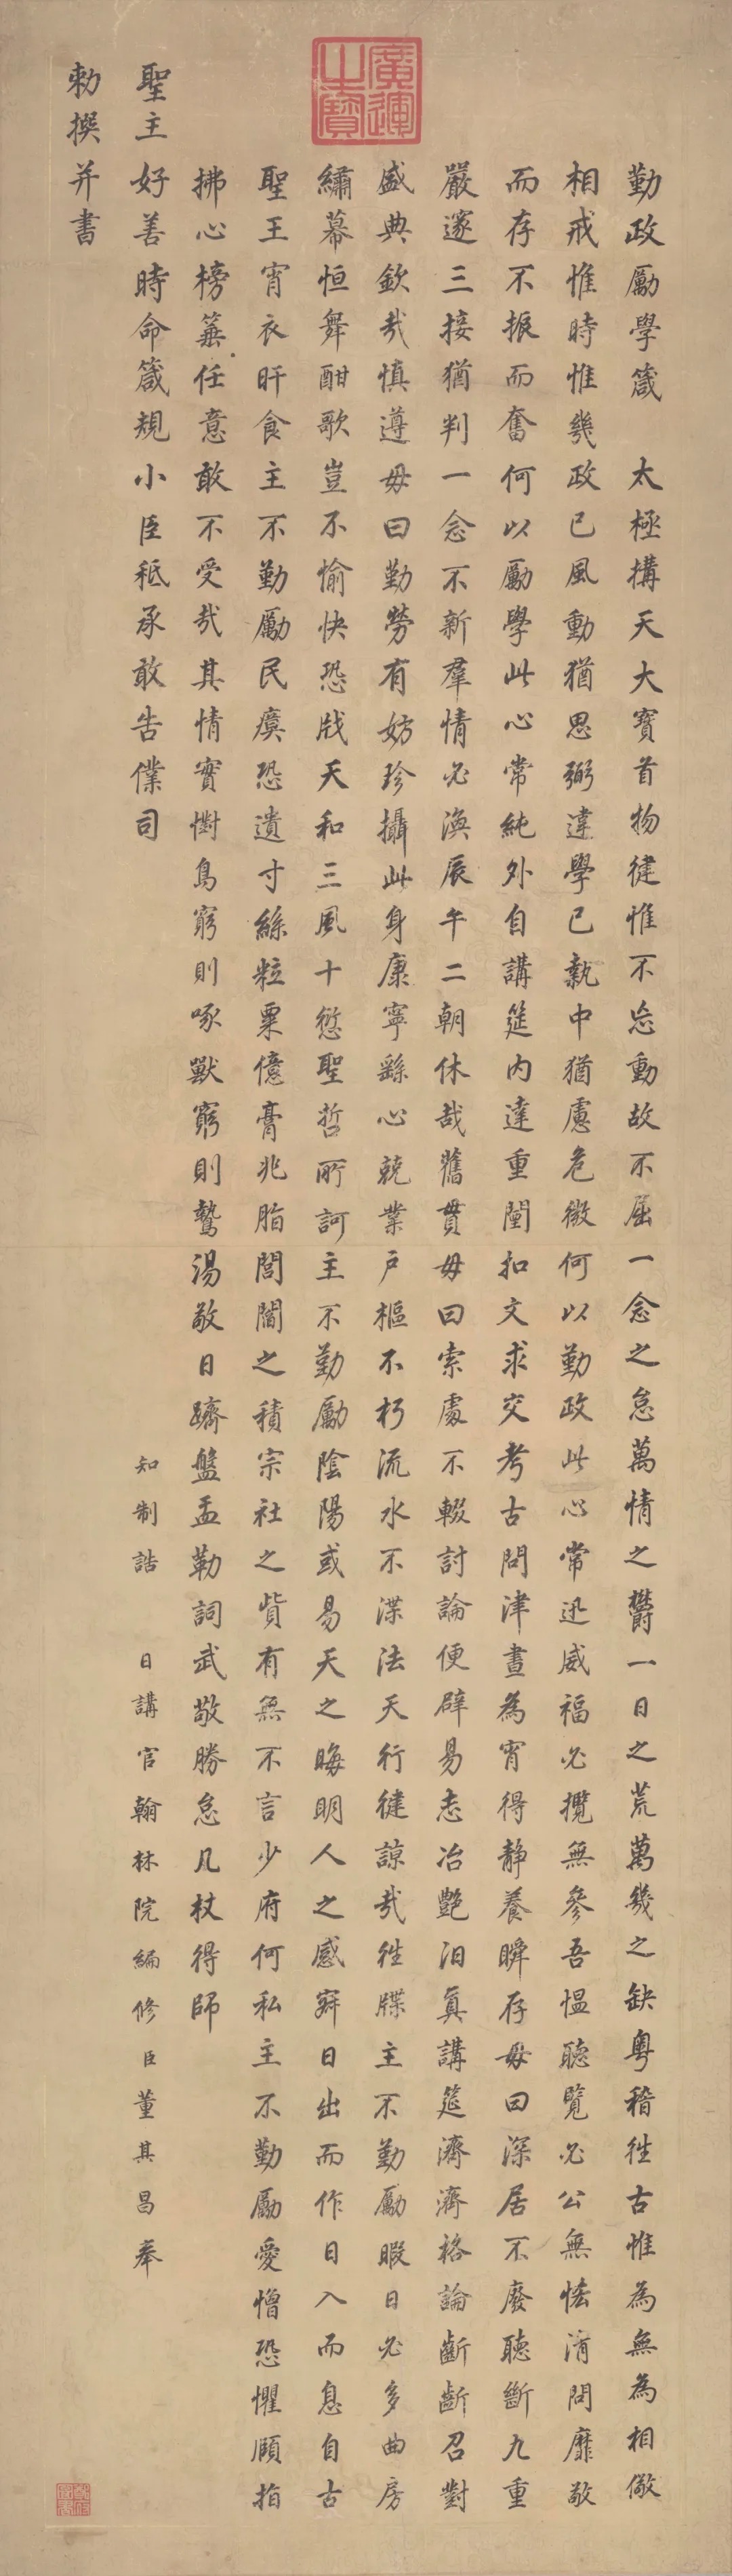 勤政勵學箴 太極搆天大寶首物健惟不忘動故不屈一念之怠萬情之鬱一日之荒萬幾之缺粵稽往古惟為無為相儆
相戒惟時惟幾政已風動猶思弼違學已執中猶慮危微何以勤政此心常迅威福必攬無參吾慍聽覽必公無恡清問靡敢
而存不振而奮何以勵學此心常純外自講筵內達重闉扣文求交考古問津晝為宵得靜養瞬存毋曰深居不廢聽斷九重
嚴邃三接猶判一念不新羣情必渙辰午二朝休哉舊貫毋曰索處不輟討論便辟易志冶艷汩真講筵濟濟格論齗齗召對
盛典欽哉慎遵毋曰勤勞有妨珍攝此身康寧繇心兢業戶樞不朽流水不渫法天行健諒哉往牒主不勤勵暇日必多曲房
繡幕恒舞酣歌豈不愉快恐戕天和三風十愆聖哲所訶主不勤勵陰陽或易天之晦明人之感寤日出而作日入而息自古
聖王宵衣旰食主不勤勵民瘼恐遺寸絲粒粟億膏兆脂閭閻之積宗社之貲有無不言少府何私主不勤勵愛憎恐懼願指
拂心榜箠任意敢不受哉其情實懟鳥窮則啄獸窮則鷙湯敬日躋盤盂勒詞武敬勝怠几杖得師
聖主好善時命箴規小臣秪承敢告僕司 知制誥 日講官翰林院編修臣董其昌奉
勅撰并書
廣運之寶